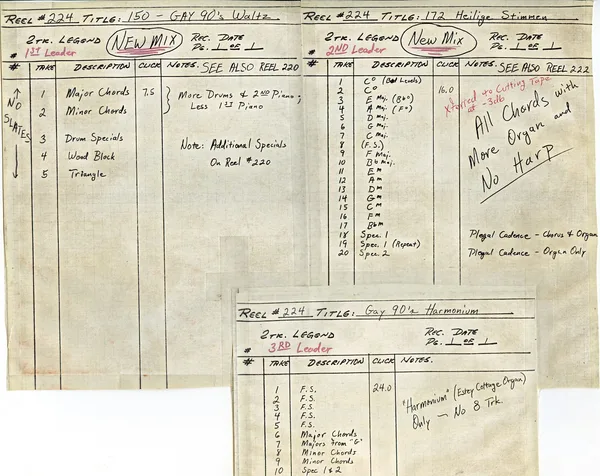 REEL #224 TITLE: 150 - GAY 90's Waltz
2TRK. LEGEND NEW MIX REC. DATE
PG. 1 OF 1
# 1ST Leader
# TAKE DESCRIPTION CLICK NOTES. SEE ALSO REEL 220
↑ NO SLATES ↓
1 Major Chords 7.5 } More Drums & 2ND Piano;
2 Minor Chords Less 1ST Piano
3 Drum Specials Note: Additional Specials
4 Wood Block On Reel #220
5 Triangle
REEL #224 TITLE: 172 Heilige Stimmen
2TRK. LEGEND New Mix REC. DATE
PG. 1 OF 1
# 2ND Leader
# TAKE DESCRIPTION CLICK NOTES. SEE ALSO REEL 222
1 C° (Bad Levels)
2 C° 16.0
Xferred to Cutting Tape
at -3db
3 E Maj. (Bb°)
4 A Maj. (F°)
5 D Maj.
6 G Maj.
7 C Maj.
8 (F.S.)
9 F Maj.
10 Bb Maj.
11 Em
12 Am
13 Dm
14 Gm
15 Cm
16 Fm
17 Bbm
All Chords with
More Organ and
No Harp
18 Spec. 1 Plagal Cadence - Chorus & Organ
19 Spec. 1 (Repeat)
20 Spec. 2 Plagal Cadence - Organ Only
REEL #224 TITLE: Gay 90's Harmonium
2TRK. LEGEND REC. DATE
PG. 1 OF 1
# 3RD Leader
# TAKE DESCRIPTION CLICK NOTES.
1 F.S. 24.0
2 F.S.
3 F.S.
4 F.S.
5 F.S.
"Harmonium" (Estey Cottage Organ)
Only - No 8 Trk.
6 Major Chords
7 Majors from "G"
8 Minor Chords
9 Minor Chords
10 Spec 1 & 2